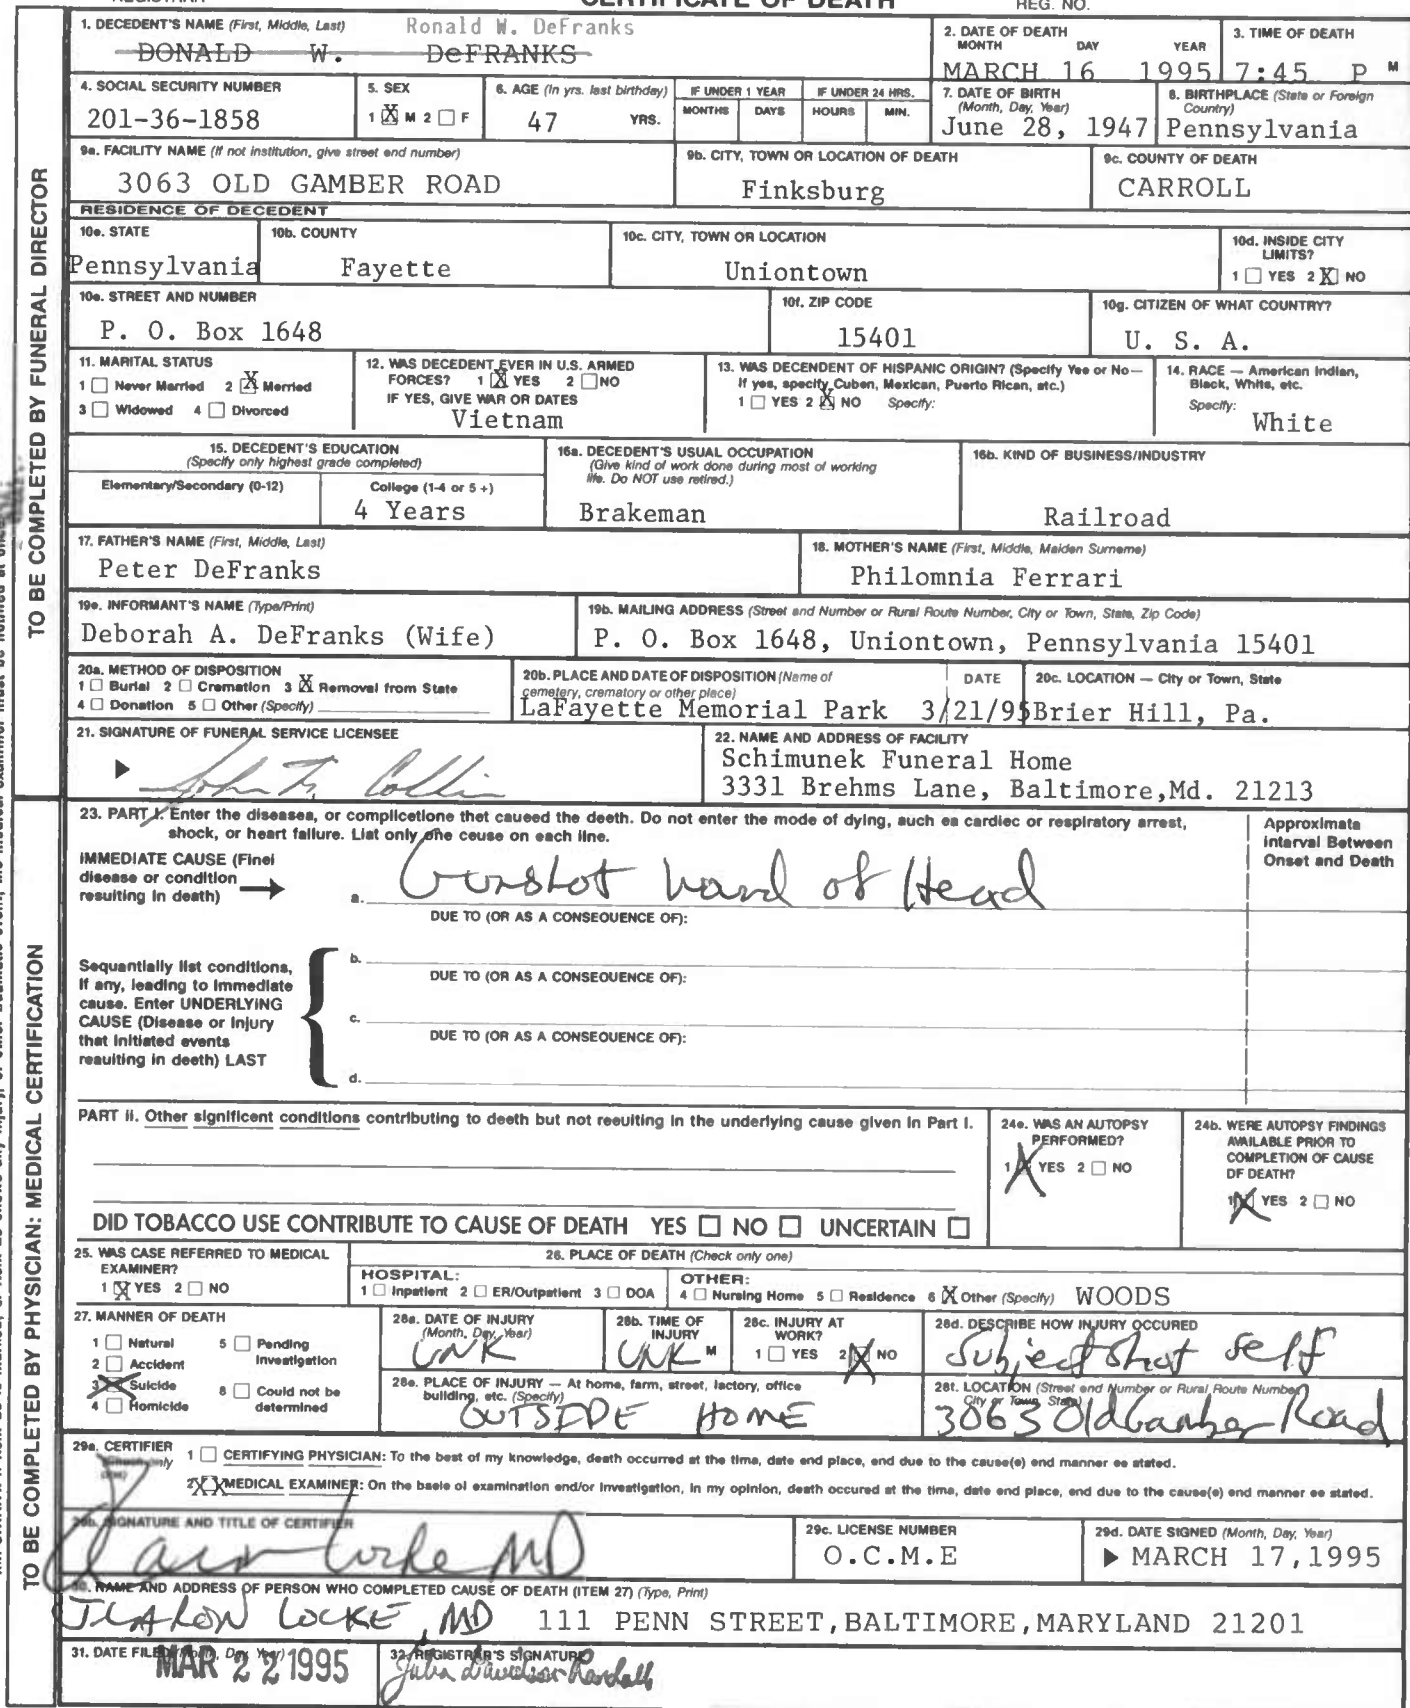 CERTIFICATE OF DEATH
REG. NO.
TO BE COMPLETED BY FUNERAL DIRECTOR
1. DECEDENT'S NAME (First, Middle, Last) Ronald W. DeFranks
DONALD W. DeFRANKS
2. DATE OF DEATH
MONTH DAY YEAR
MARCH 16 1995
3. TIME OF DEATH
7:45 P M
4. SOCIAL SECURITY NUMBER
201-36-1858
5. SEX
1 X M 2 □ F
6. AGE (In yrs. last birthday)
47 YRS.
IF UNDER 1 YEAR
MONTHS DAYS
IF UNDER 24 HRS.
HOURS MIN.
7. DATE OF BIRTH
(Month, Day, Year)
June 28, 1947
8. BIRTHPLACE (State or Foreign
Country)
Pennsylvania
9a. FACILITY NAME (If not institution, give street and number)
3063 OLD GAMBER ROAD
9b. CITY, TOWN OR LOCATION OF DEATH
Finksburg
9c. COUNTY OF DEATH
CARROLL
RESIDENCE OF DECEDENT
10a. STATE
Pennsylvania
10b. COUNTY
Fayette
10c. CITY, TOWN OR LOCATION
Uniontown
10d. INSIDE CITY
LIMITS?
1 □ YES 2 X NO
10e. STREET AND NUMBER
P. O. Box 1648
10f. ZIP CODE
15401
10g. CITIZEN OF WHAT COUNTRY?
U. S. A.
11. MARITAL STATUS
1 □ Never Married 2 X Married
3 □ Widowed 4 □ Divorced
12. WAS DECEDENT EVER IN U.S. ARMED
FORCES? 1 X YES 2 □ NO
IF YES, GIVE WAR OR DATES
Vietnam
13. WAS DECENDENT OF HISPANIC ORIGIN? (Specify Yes or No—
If yes, specify Cuban, Mexican, Puerto Rican, etc.)
1 □ YES 2 X NO Specify:
14. RACE — American Indian,
Black, White, etc.
Specify:
White
15. DECEDENT'S EDUCATION
(Specify only highest grade completed)
Elementary/Secondary (0-12)
College (1-4 or 5 +)
4 Years
16a. DECEDENT'S USUAL OCCUPATION
(Give kind of work done during most of working
life. Do NOT use retired.)
Brakeman
16b. KIND OF BUSINESS/INDUSTRY
Railroad
17. FATHER'S NAME (First, Middle, Last)
Peter DeFranks
18. MOTHER'S NAME (First, Middle, Maiden Surname)
Philomnia Ferrari
19a. INFORMANT'S NAME (Type/Print)
Deborah A. DeFranks (Wife)
19b. MAILING ADDRESS (Street and Number or Rural Route Number, City or Town, State, Zip Code)
P. O. Box 1648, Uniontown, Pennsylvania 15401
20a. METHOD OF DISPOSITION
1 □ Burial 2 □ Cremation 3 X Removal from State
4 □ Donation 5 □ Other (Specify)
20b. PLACE AND DATE OF DISPOSITION (Name of
cemetery, crematory or other place)
DATE
LaFayette Memorial Park 3/21/95
20c. LOCATION — City or Town, State
Brier Hill, Pa.
21. SIGNATURE OF FUNERAL SERVICE LICENSEE
22. NAME AND ADDRESS OF FACILITY
Schimunek Funeral Home
3331 Brehms Lane, Baltimore,Md. 21213
TO BE COMPLETED BY PHYSICIAN: MEDICAL CERTIFICATION
23. PART I. Enter the diseases, or complications that caused the death. Do not enter the mode of dying, such as cardiac or respiratory arrest,
shock, or heart failure. List only one cause on each line.
Approximate
Interval Between
Onset and Death
IMMEDIATE CAUSE (Final
disease or condition
resulting in death)
a. Gunshot Wound of Head
DUE TO (OR AS A CONSEQUENCE OF):
Sequentially list conditions,
if any, leading to immediate
cause. Enter UNDERLYING
CAUSE (Disease or injury
that initiated events
resulting in death) LAST
b.
DUE TO (OR AS A CONSEQUENCE OF):
c.
DUE TO (OR AS A CONSEQUENCE OF):
d.
PART II. Other significant conditions contributing to death but not resulting in the underlying cause given in Part I.
24a. WAS AN AUTOPSY
PERFORMED?
1 X YES 2 □ NO
24b. WERE AUTOPSY FINDINGS
AVAILABLE PRIOR TO
COMPLETION OF CAUSE
OF DEATH?
1 X YES 2 □ NO
DID TOBACCO USE CONTRIBUTE TO CAUSE OF DEATH YES □ NO □ UNCERTAIN □
25. WAS CASE REFERRED TO MEDICAL
EXAMINER?
1 X YES 2 □ NO
26. PLACE OF DEATH (Check only one)
HOSPITAL:
1 □ Inpatient 2 □ ER/Outpatient 3 □ DOA
OTHER:
4 □ Nursing Home 5 □ Residence 6 X Other (Specify) WOODS
27. MANNER OF DEATH
1 □ Natural 5 □ Pending
Investigation
2 □ Accident
3 X Suicide 6 □ Could not be
determined
4 □ Homicide
28a. DATE OF INJURY
(Month, Day, Year)
UNK
28b. TIME OF
INJURY
UNK M
28c. INJURY AT
WORK?
1 □ YES 2 X NO
28d. DESCRIBE HOW INJURY OCCURED
Subject shot self
28e. PLACE OF INJURY — At home, farm, street, factory, office
building, etc. (Specify)
OUTSIDE HOME
28f. LOCATION (Street and Number or Rural Route Number,
City or Town, State)
3063 Old Gamber Road
29a. CERTIFIER
1 □ CERTIFYING PHYSICIAN: To the best of my knowledge, death occurred at the time, date and place, and due to the cause(s) and manner as stated.
2 XX MEDICAL EXAMINER: On the basis of examination and/or investigation, in my opinion, death occured at the time, date and place, and due to the cause(s) and manner as stated.
29b. SIGNATURE AND TITLE OF CERTIFIER
Locke MD
29c. LICENSE NUMBER
O.C.M.E
29d. DATE SIGNED (Month, Day, Year)
MARCH 17,1995
30. NAME AND ADDRESS OF PERSON WHO COMPLETED CAUSE OF DEATH (ITEM 27) (Type, Print)
J LARON LOCKE, MD 111 PENN STREET,BALTIMORE,MARYLAND 21201
31. DATE FILED (Month, Day, Year)
MAR 22 1995
32. REGISTRAR'S SIGNATURE